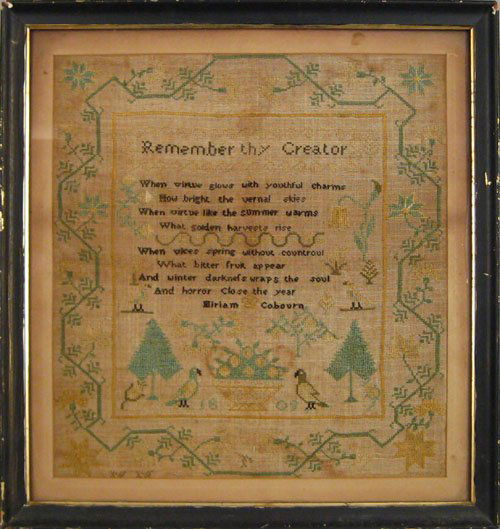 Remember thy Creator
When virtue glows with youthful charms
How bright the vernal skies
When virtue like the summer warms
What golden harvests rise
When vices spring without countroul
What bitter fruit appear
And winter darkness wraps the soul
And horror Close the year
Miriam Cobourn